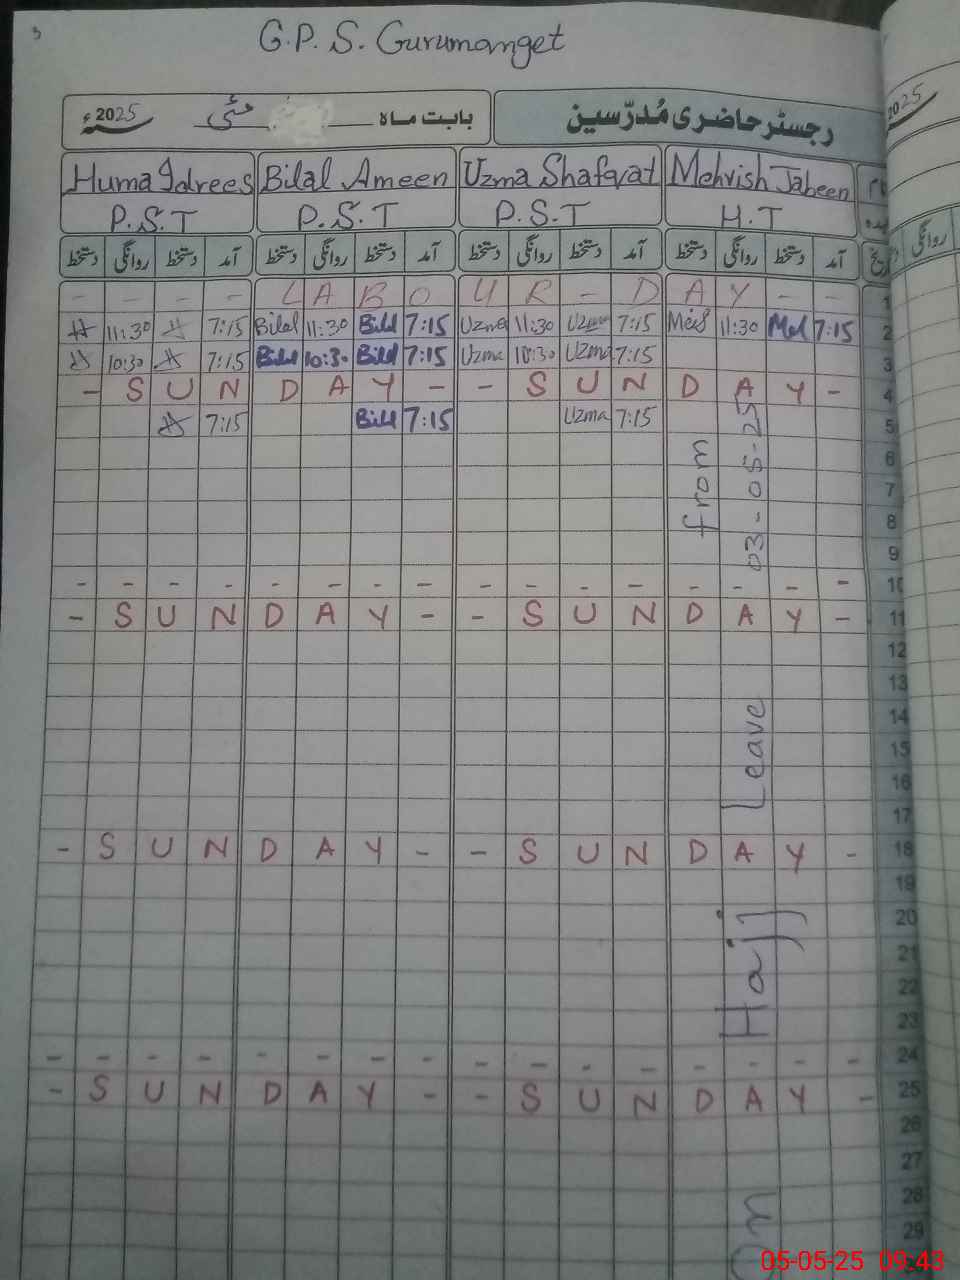 3
G.P.S. Gurumanget
رجسٹر حاضری مُدرّسین بابت ماہ مئی 2025ء
2025
Huma Idrees Bilal Ameen Uzma Shafqat Mehvish Jabeen
P.S.T P.S.T P.S.T H.T
دستخط روانگی دستخط آمد دستخط روانگی دستخط آمد دستخط روانگی دستخط آمد دستخط روانگی دستخط آمد تاریخ
روانگی
- - - - L A B O U R - D A Y - - 1
11:30 7:15 Bilal 11:30 Bilal 7:15 Uzma 11:30 Uzma 7:15 11:30 7:15 2
10:30 7:15 Bilal 10:30 Bilal 7:15 Uzma 10:30 Uzma 7:15 3
- S U N D A Y - - S U N D A Y - 4
7:15 Bilal 7:15 Uzma 7:15 5
6
7
8
9
- - - - - - - - - - - - - - - - 10
- S U N D A Y - - S U N D A Y - 11
12
13
14
15
16
17
- S U N D A Y - - S U N D A Y - 18
19
20
21
22
23
- - - - - - - - - - - - - - - - 24
- S U N D A Y - - S U N D A Y - 25
26
27
28
29
on Hajj Leave
from
03-05-25
05-05-25 09:43